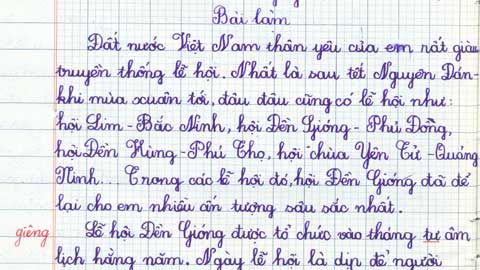 Bài làm
Đất nước Việt Nam thân yêu của em rất giàu
truyền thống lễ hội. Nhất là sau tết Nguyên Dán-
khi mùa xuân tới, đâu đâu cũng có lễ hội như:
hội Lim - Bắc Ninh, hội Đền Gióng - Phù Đổng,
hội Đền Hùng - Phú Thọ, hội chùa Yên Tử - Quảng
Ninh... Trong các lễ hội đó, hội Đền Gióng đã để
lại cho em nhiều ấn tượng sâu sắc nhất.
giêng Lễ hội Đền Gióng được tổ chức vào tháng tư âm
lịch hằng năm. Ngày lễ hội là dịp để người